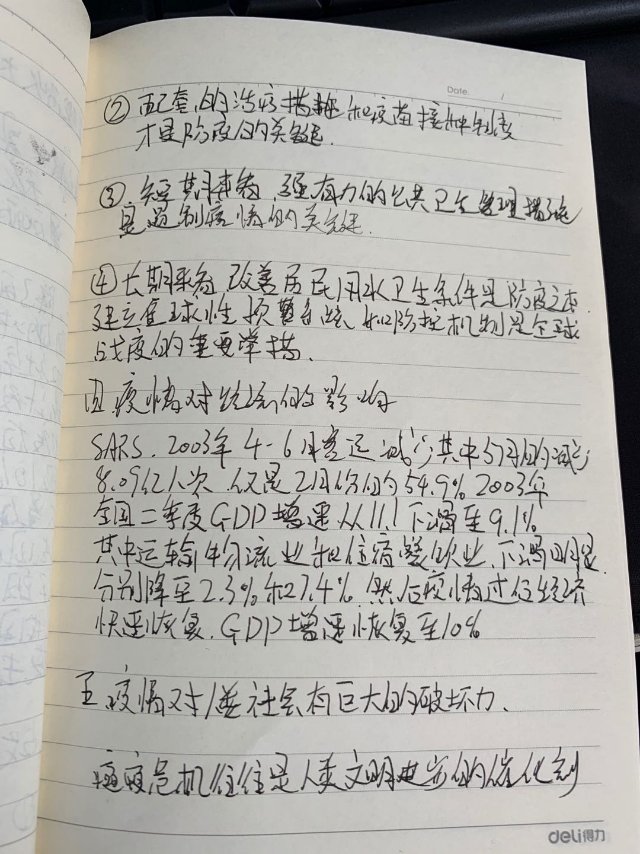 Date
② 配套的治疗措施和疫苗接种制度
才是防疫的关键.
③ 短期来看, 强有力的公共卫生管理措施
是遏制疫情的关键.
④ 长期来看 改善居民用水卫生条件是防疫之本
建立全球性预警系统 和防控机制是全球
战疫的重要举措.
四 疫情对经济的影响
SARS. 2003年 4-6月客运减少其中5月份减少
8.09亿人次 仅是2月份的54.9% 2003年
全国二季度GDP增速从11.1下滑至9.1%
其中运输物流业和住宿餐饮业 下滑明显
分别降至2.3%和7.4% 然后疫情过后经济
快速恢复. GDP增速恢复至10%
五 疫情对人类社会有巨大的破坏力.
瘟疫危机往往是人类文明进步的催化剂
deli得力